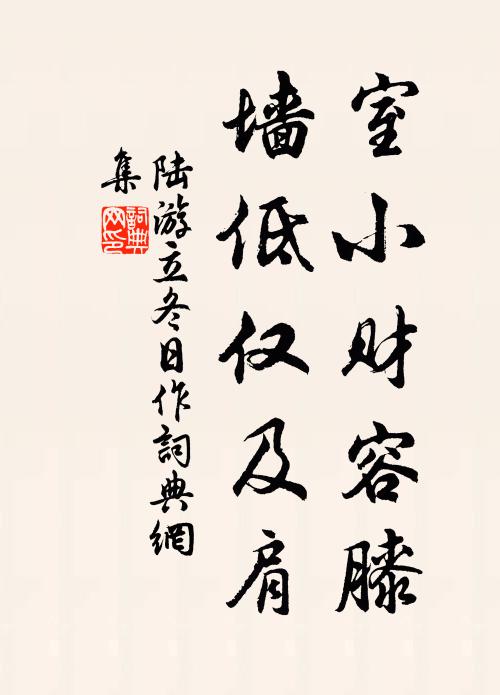 室小财容膝
墙低仅及肩
陆游立冬日作詞典網
集
詞典
网印